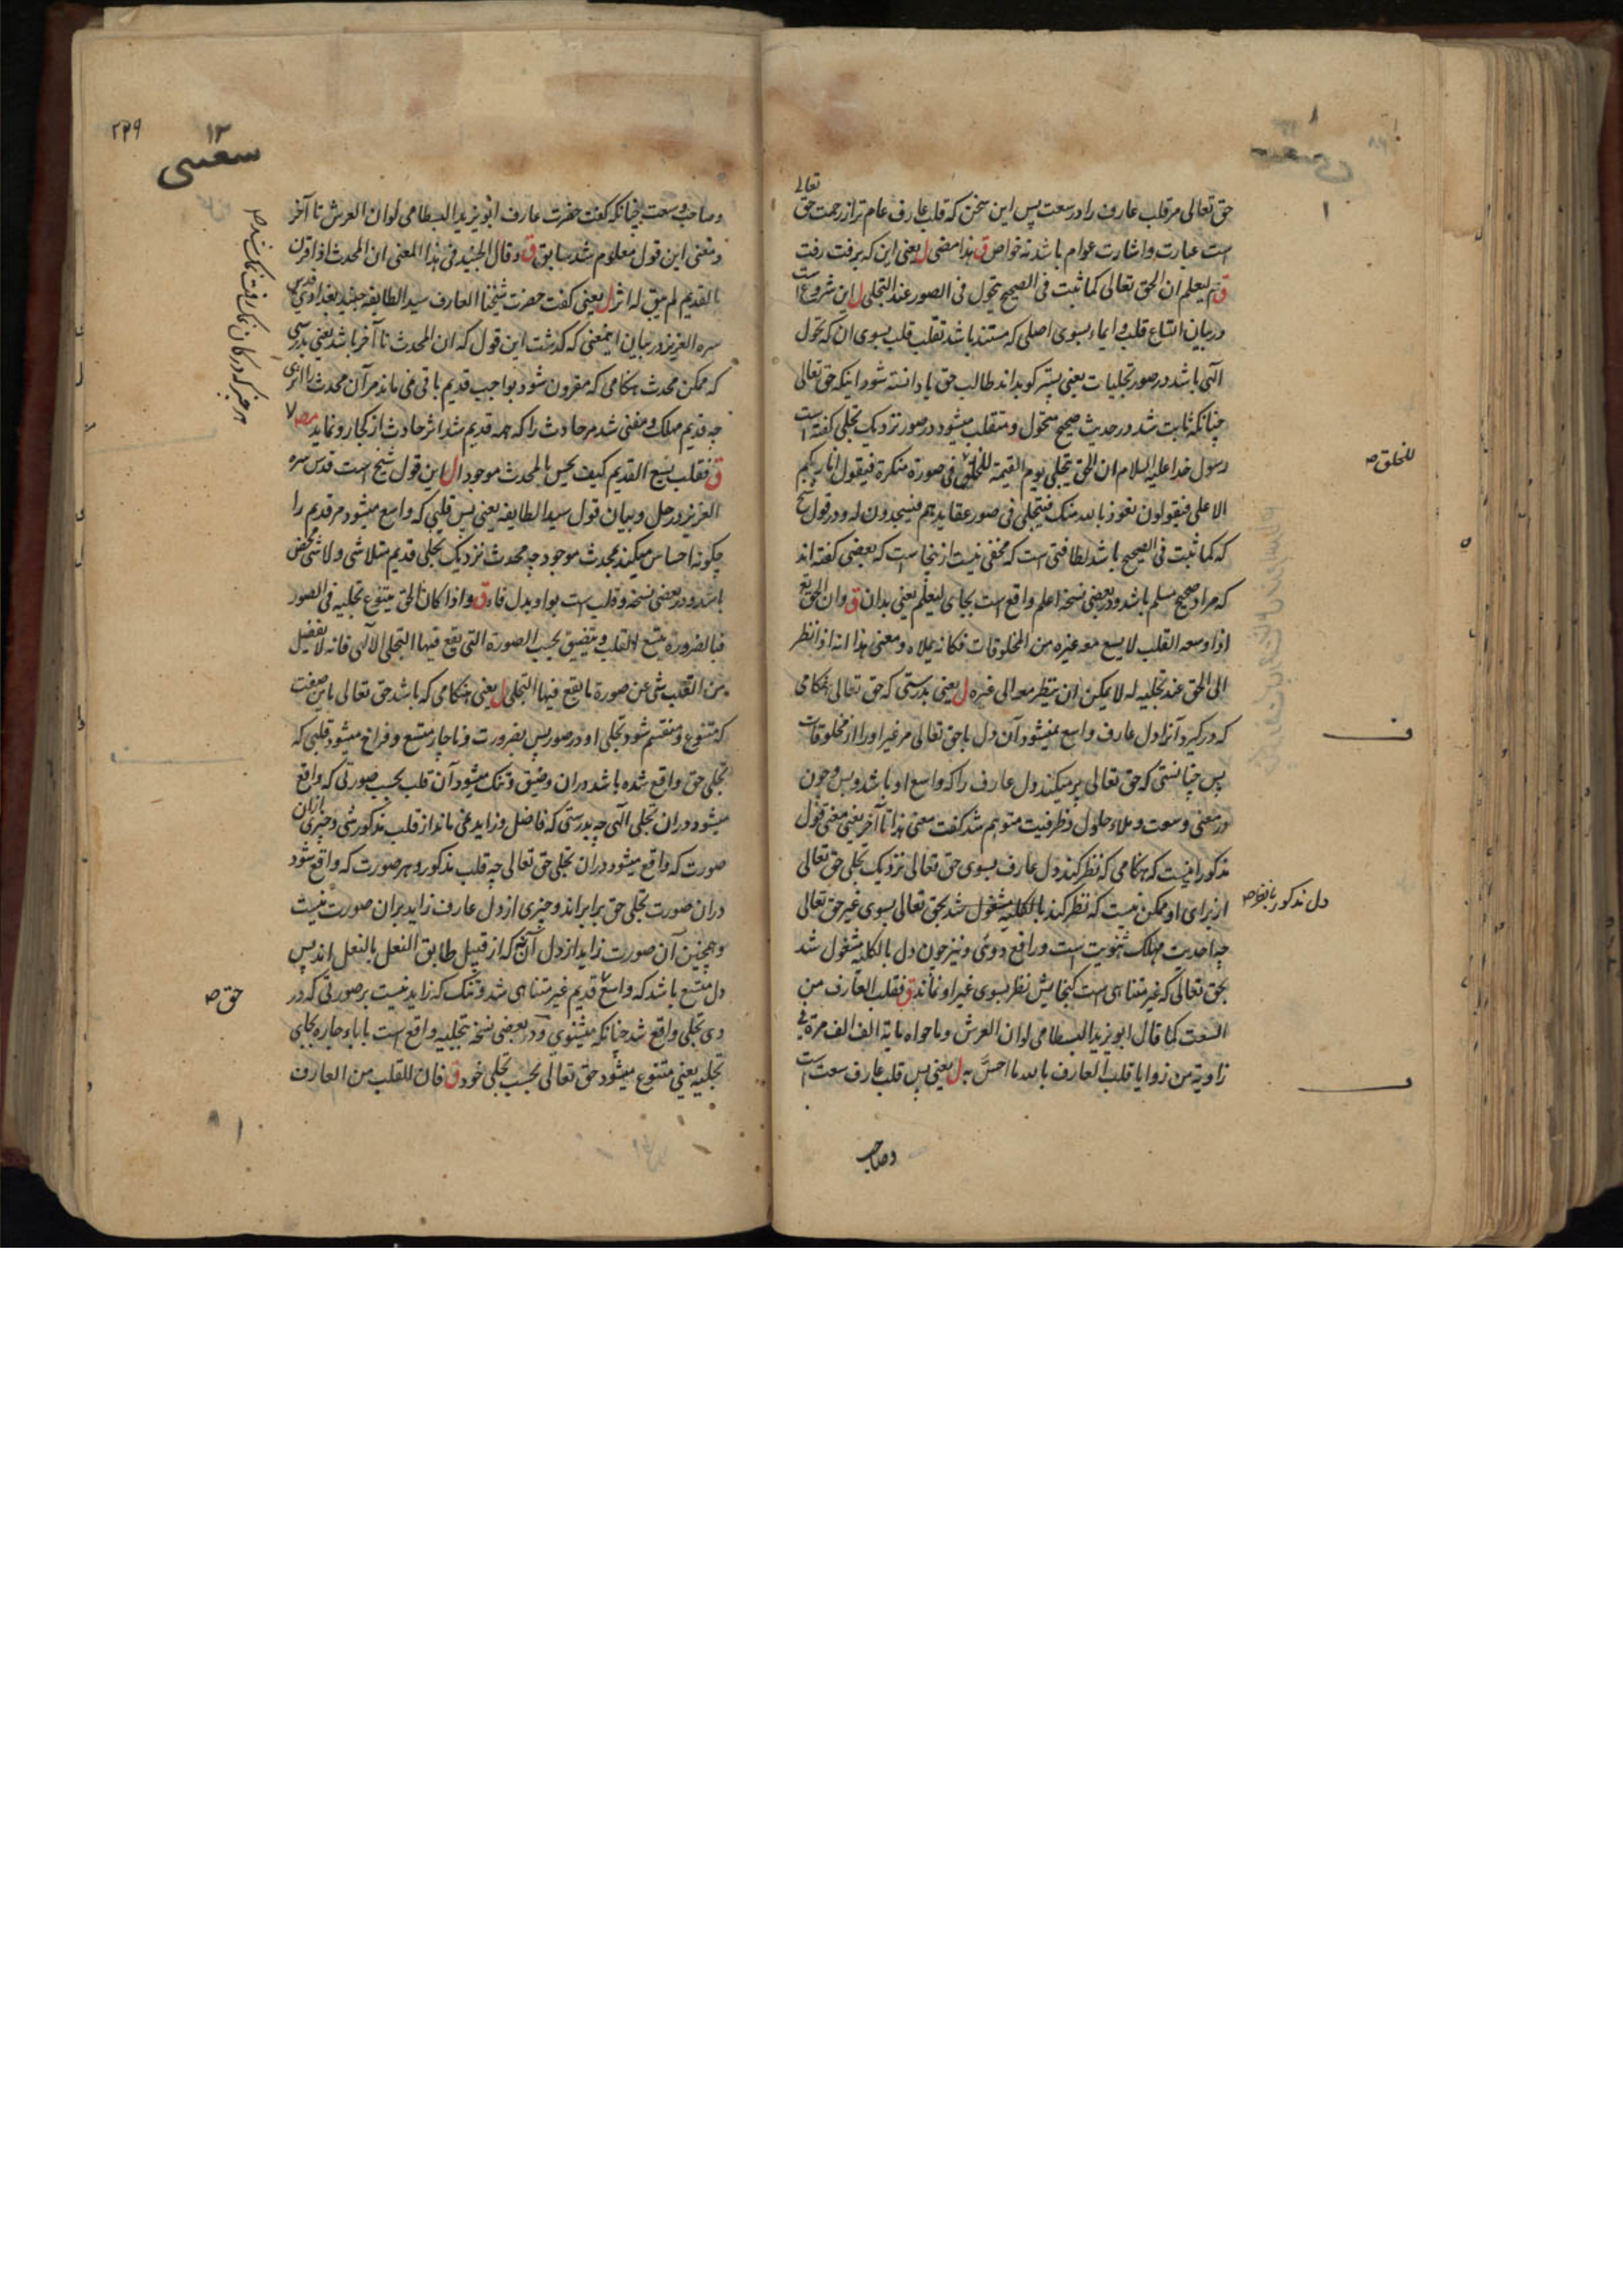 تعالی
حق تعالی مر قلب عارف را در سعت پس این سخن که قلب عارف عام تر از رحمت حق
است عبارت و اشارت عوام باشد نه خواص ق هذا مضی ل یعنی این که برفت رفت
ق ثم لیعلم ان الحق تعالی کما ثبت فی الصحیح یتحول فی الصور عند التجلی ل این شروع است
در بیان اتساع قلب و ایماء بسوی اصلی که مستند باشد تقلب قلب بسوی ان که تحول
الهی باشد در صور تجلیات یعنی پستر کو بداند طالب حق یا دانسته شود اینکه حق تعالی
چنانکه ثابت شد در حدیث صحیح متحول و متقلب میشود در صور نزدیک تجلی گفته است
رسول خدا علیه السلام ان الحق یتجلی یوم القیمة للخلق فی صورة منکرة فیقول انا ربکم
الاعلی فیقولون نعوذ بالله منک فیتجلی فی صور عقایدهم فیسجدون له و در قول شیخ
که کما ثبت فی الصحیح باشد لطافتی است که مخفی نیست از ینجا است که بعضی گفته اند
که مراد صحیح مسلم باشد و در بعضی نسخه اعلم واقع است بجای لیعلم یعنی بدان ق و ان الحق تع
اذا وسعه القلب لا یسع معه غیره من المخلوقات فکانه یملاه و معنی هذا انه اذا نظر
الی الحق عند تجلیه له لا یمکن ان ینظر معه الی غیره ل یعنی بدرستی که حق تعالی هنگامی
که در گیرد آنرا دل عارف واسع نمیشود آن دل با حق تعالی مر غیر او را از مخلوقات
پس چنانستی که حق تعالی پر میکند دل عارف را که واسع او باشد و بس و چون
در معنی وسعت و ملاء حلول و ظرفیت متوهم شد گفت معنی هذا تا آخر یعنی معنی قول
مذکور اینست که هنگامی که نظر کند دل عارف بسوی حق تعالی نزدیک تجلی حق تعالی
از برای او ممکن نیست که نظر کند بالکلیه مشغول شد بحق تعالی بسوی غیر حق تعالی
چه احدیت مهلک ثنویت است و رافع دوئی و نیز چون دل بالکلیه مشغول شد
بحق تعالی که غیر متناهی است گنجایش نظر بسوی غیر او نماند ق فقلب العارف من
السعت کما قال ابو یزید البسطامی لو ان العرش و ما حواه مایة الف الف مرة فی
زاویة من زوایا قلب العارف بالله ما احس به ل یعنی پس قلب عارف سعت است
وصاحب
للخلق صح
دل مذکور
۲۳۹
۱۲
وصاحب وسعت چنانکه گفت حضرت عارف ابو یزید البسطامی لو ان العرش تا آخر
و معنی این قول معلوم شد سابق ق و قال الجنید فی هذا المعنی ان المحدث اذا قرن
بالقدیم لم یبق له اثر ل یعنی گفت حضرت شیخنا العارف سید الطایفه جنید بغدادی قدس
سره العزیز در بیان اینمعنی که گذشت این قول که ان المحدث تا آخر باشد یعنی بدرستی
که ممکن محدث هنگامی که مقرون شود بواجب قدیم باقی نمی ماند مر آن محدث را اثری
چه قدیم مهلک و مفنی شد مر حادث را که همه قدیم شد اثر حادث از کجا رو نماید
ق فقلب یسع القدیم کیف یحس بالمحدث موجودا ل این قول شیخ است قدس سره
العزیز در حل و بیان قول سید الطایفه یعنی پس قلبی که واسع میشود مر قدیم را
چگونه احساس میکند بمحدث موجود چه محدث نزدیک تجلی قدیم متلاشی و لاشی محض
باشد و در بعضی نسخه و قلب است بواو بدل فاء ق و اذا کان الحق یتنوع تجلیه فی الصور
فبالضرورة یتسع القلب و یتضیق بحسب الصورة التی یقع فیها التجلی الالهی فانه لا یفضل
من القلب شی عن صورة ما یقع فیها التجلی ل یعنی هنگامی که باشد حق تعالی باین صفت
که متنوع و منقسم شود تجلی او در صور پس بضرورت و ناچار متسع و فراخ میشود قلبی که
تجلی حق واقع شده باشد دران و ضیق و تنک میشود آن قلب بحسب صورتی که واقع
میشود دران تجلی الهی چه بدرستی که فاضل و زاید نمی ماند از قلب مذکور شی و چیزی ازان
صورت که واقع میشود دران تجلی حق تعالی چه قلب مذکور و هر صورت که واقع شود
دران صورت تجلی حق برابراند و چیزی از دل عارف زاید بران صورت نیست
و همچنین آن صورت زاید از دل آن نه که از قبیل طابق النعل بالنعل اند پس
دل متسع باشد که واسع قدیم غیر متناهی شد و تنک که زاید نیست بر صورتی که در
وی تجلی واقع شد چنانکه میشنوی و در بعضی نسخه بتجلیه واقع است با باء جاره بجای
تجلیه یعنی متنوع میشود حق تعالی بحسب تجلی خود ق فان القلب من العارف
هر چیز که در کان نمک رفت نمک شد صح
حق صح